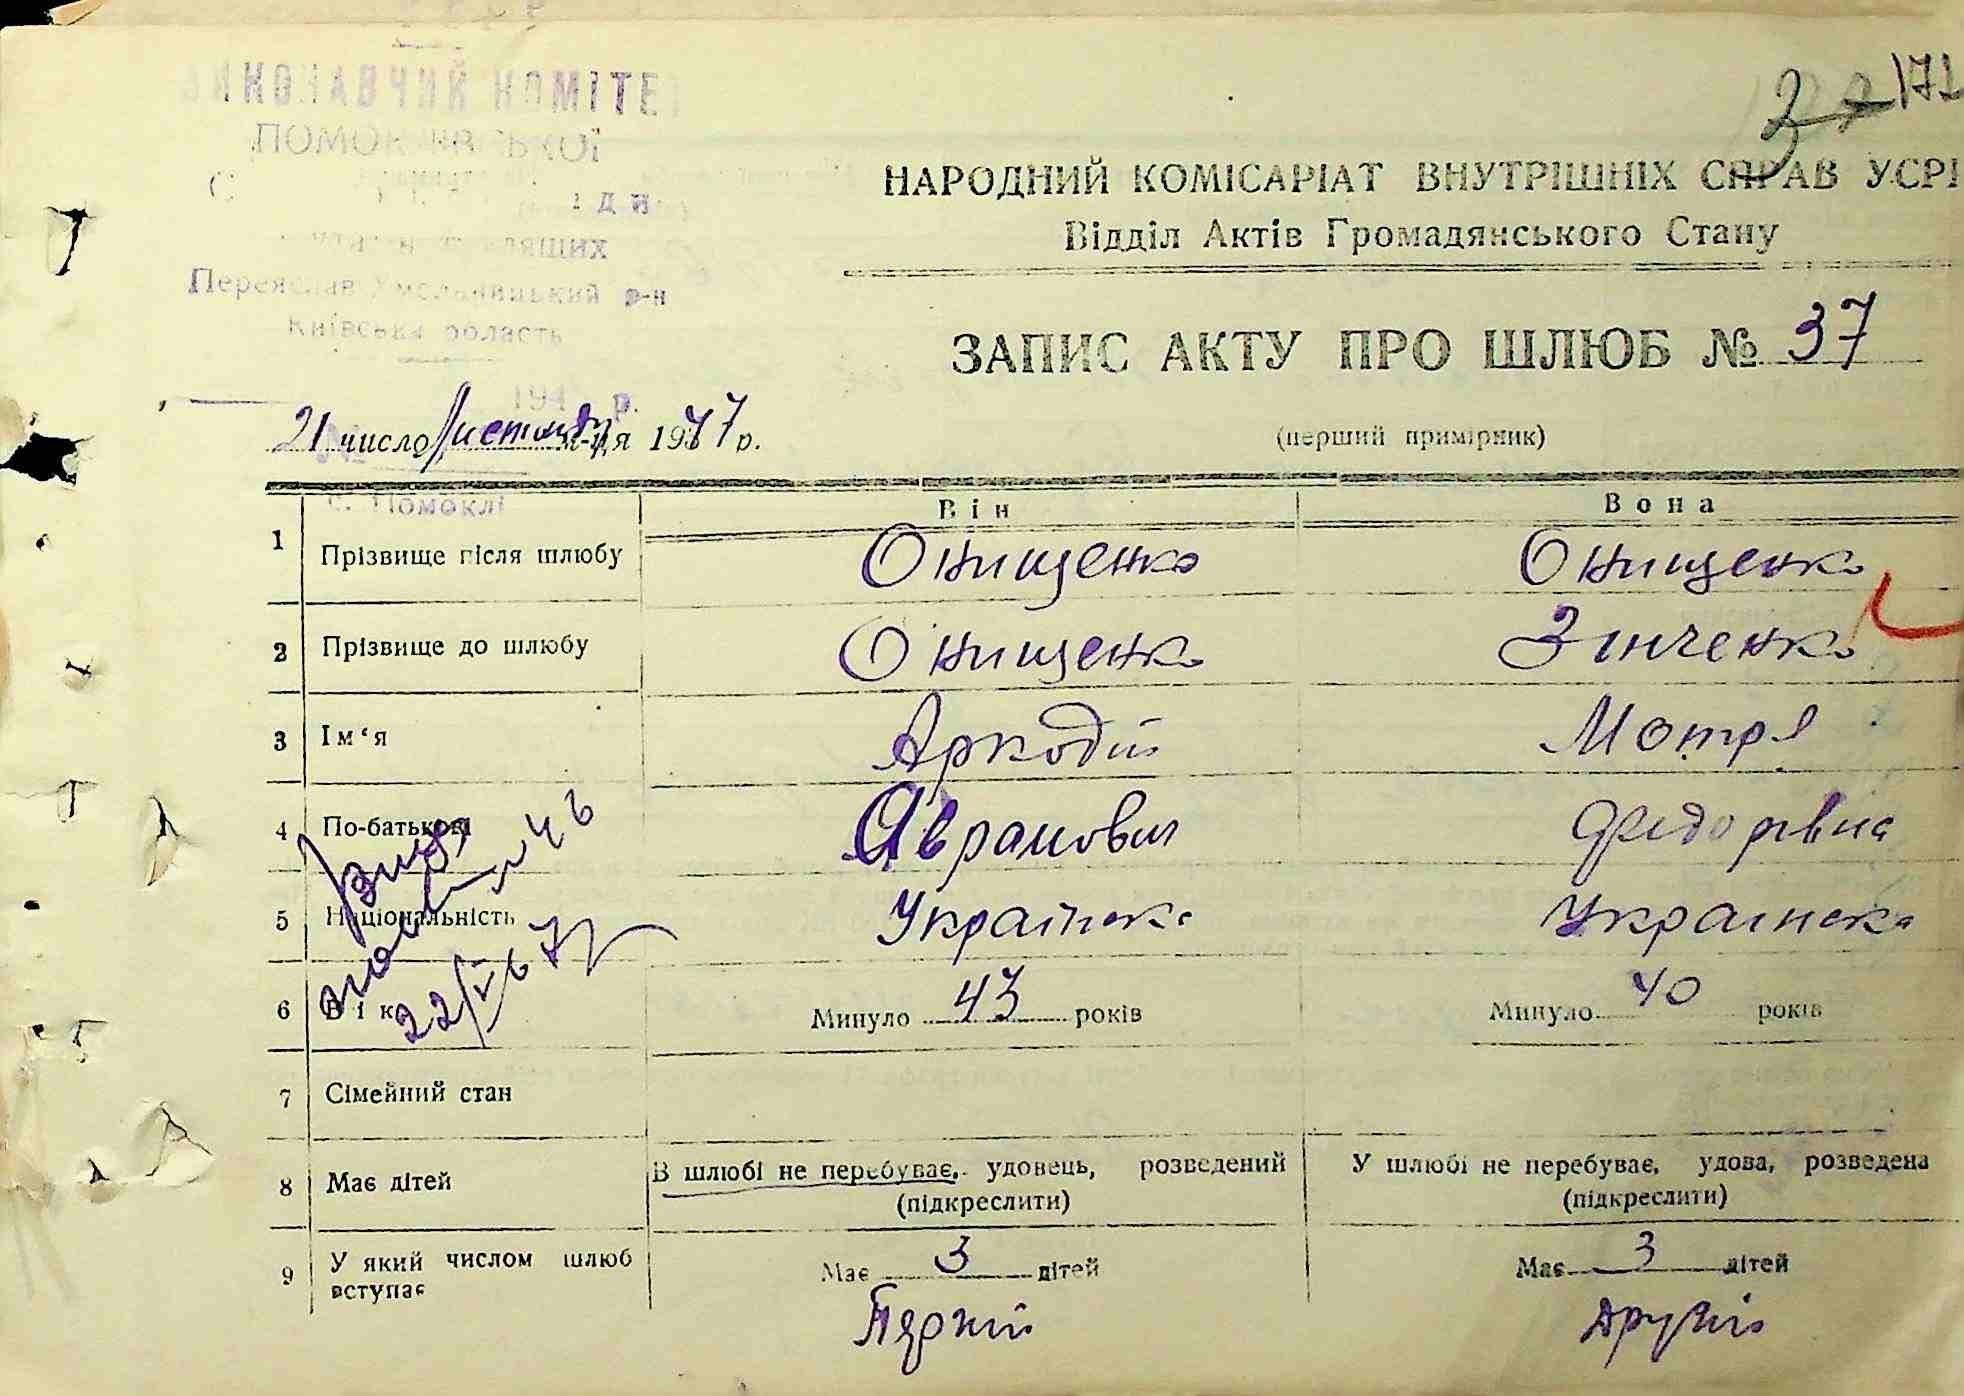 ВИКОНАВЧИЙ КОМІТЕТ
Переяслав Хмельницький р-н
Київська область
194 р.
с. Помоклі
171
НАРОДНИЙ КОМІСАРІАТ ВНУТРІШНІХ СПРАВ УСРР
Відділ Актів Громадянського Стану
ЗАПИС АКТУ ПРО ШЛЮБ № 37
21 число листопаду м-ця 1947 р.
(перший примірник)
Він Вона
1 Прізвище після шлюбу Онищенко Онищенко
2 Прізвище до шлюбу Онищенко Зінченко
3 Ім‘я Аркодій Мотря
4 По-батькові Аврамович Федорівна
5 Національність Українска Українска
6 Вік Минуло 43 років Минуло 40 років
7 Сімейний стан
8 Має дітей В шлюбі не перебуває, удовець, розведений У шлюбі не перебуває, удова, розведена
(підкреслити) (підкреслити)
9 У який числом шлюб вступає Має 3 дітей Має 3 дітей
Перший Другий